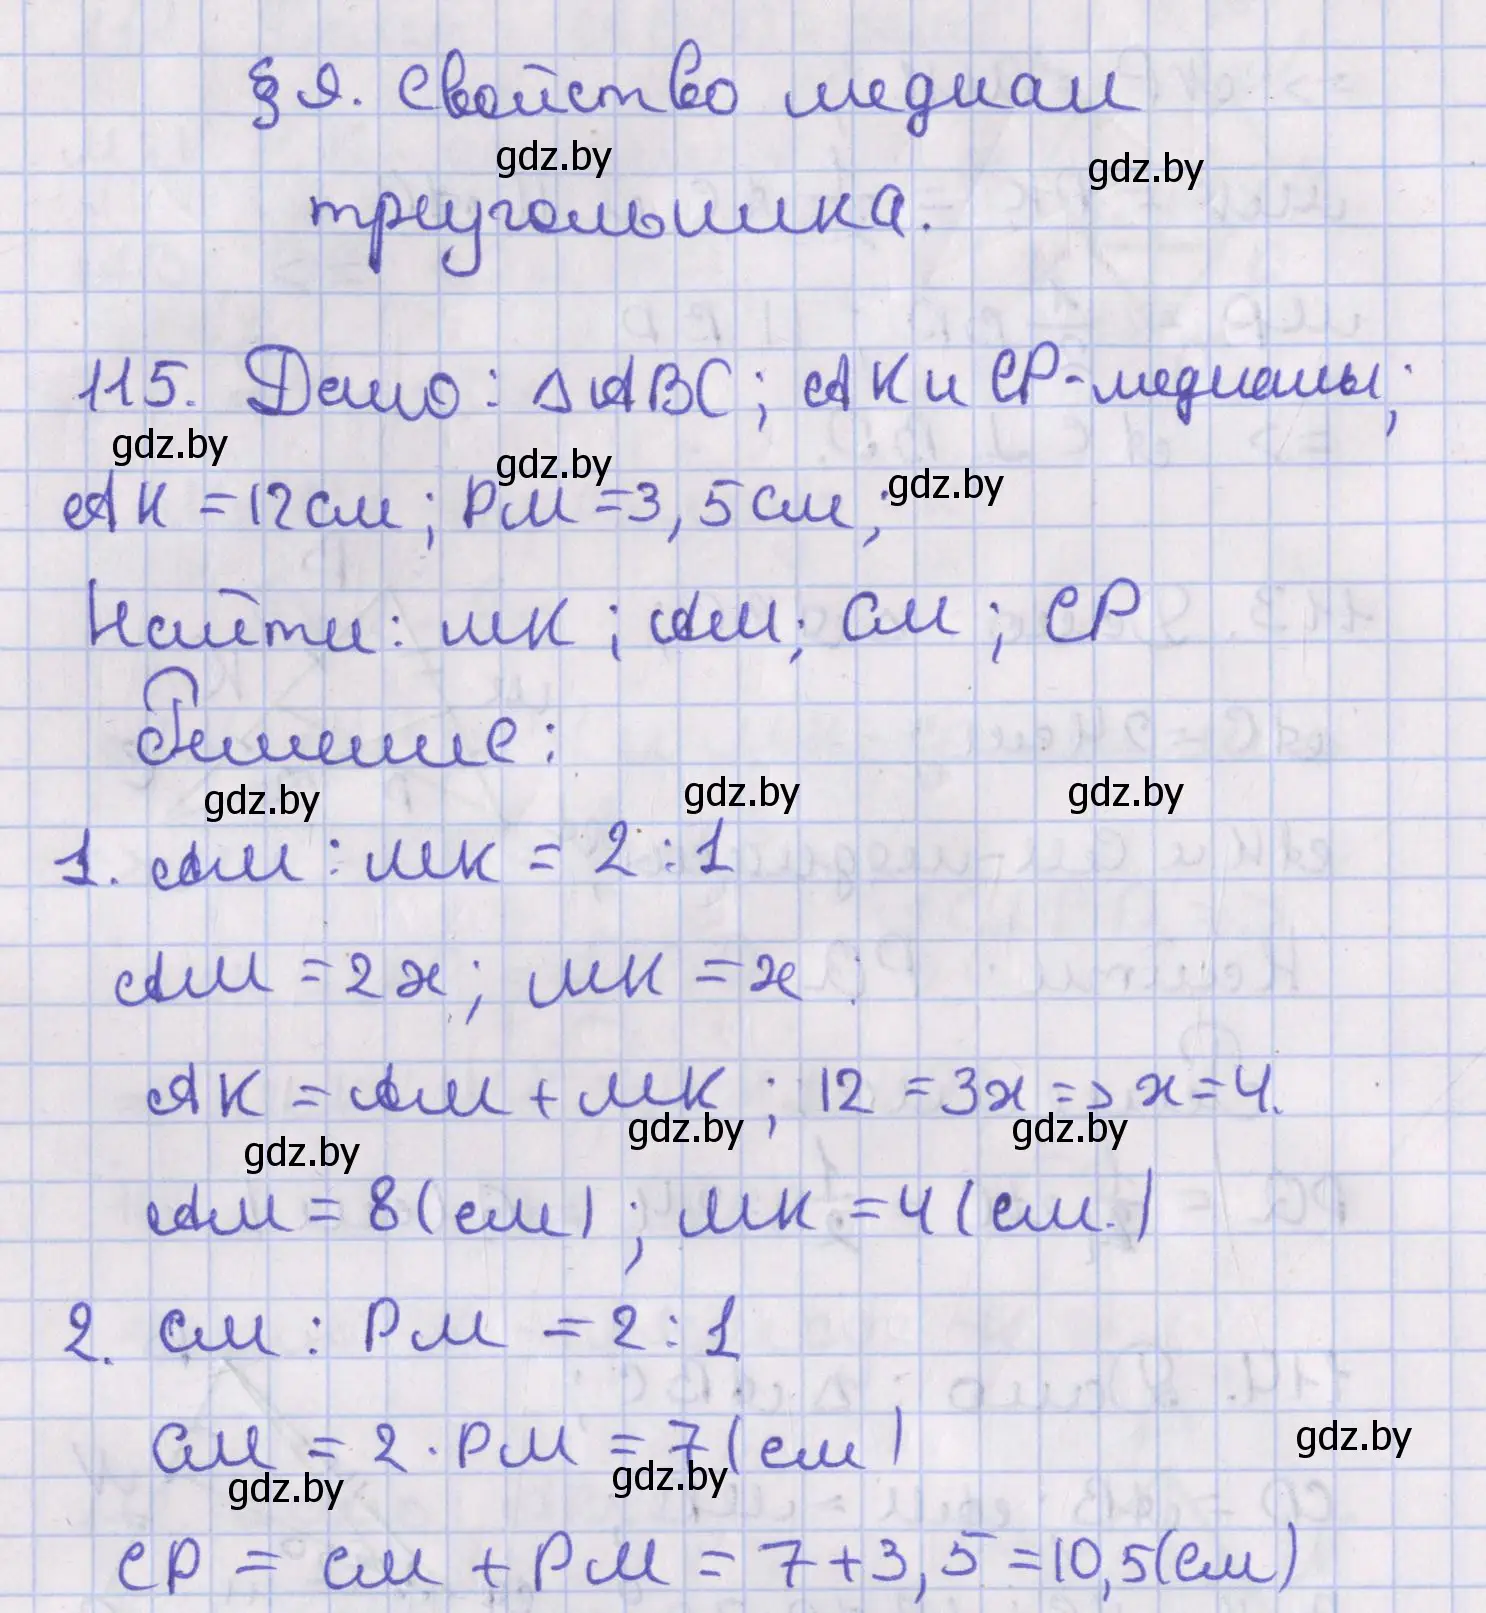 § 9. Свойство медиан
gdz.by gdz.by
треугольника.
115. Дано: △ABC; AK и CP-медианы;
gdz.by gdz.by gdz.by
AK = 12 см; PM = 3,5 см;
Найти: MK; AM; CM; CP
Решение:
gdz.by gdz.by gdz.by
1. AM : MK = 2 : 1
AM = 2x; MK = x
AK = AM + MK; 12 = 3x => x = 4.
gdz.by gdz.by gdz.by
AM = 8 (см); MK = 4 (см.)
2. CM : PM = 2 : 1
CM = 2 · PM = 7 (см)
gdz.by gdz.by gdz.by
CP = CM + PM = 7 + 3,5 = 10,5 (см)